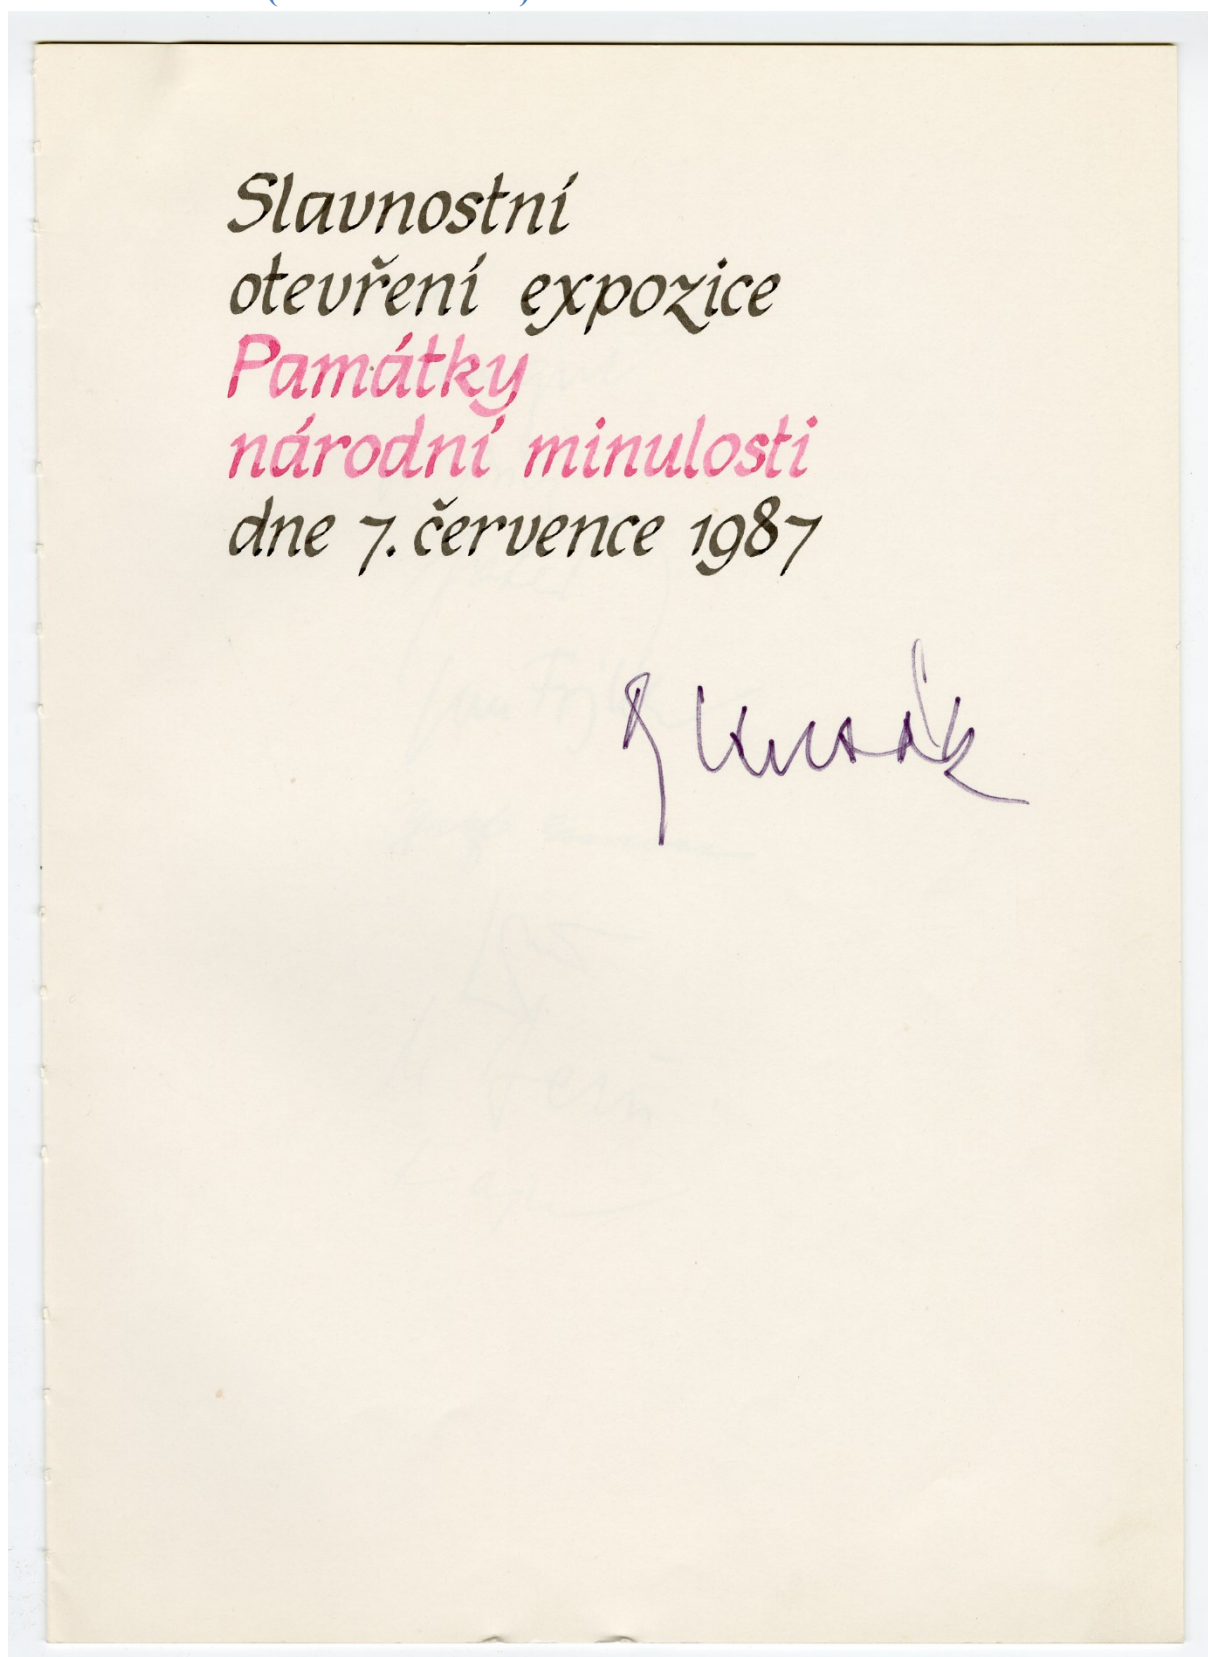 Slavnostní
otevření expozice
Památky
národní minulosti
dne 7. července 1987